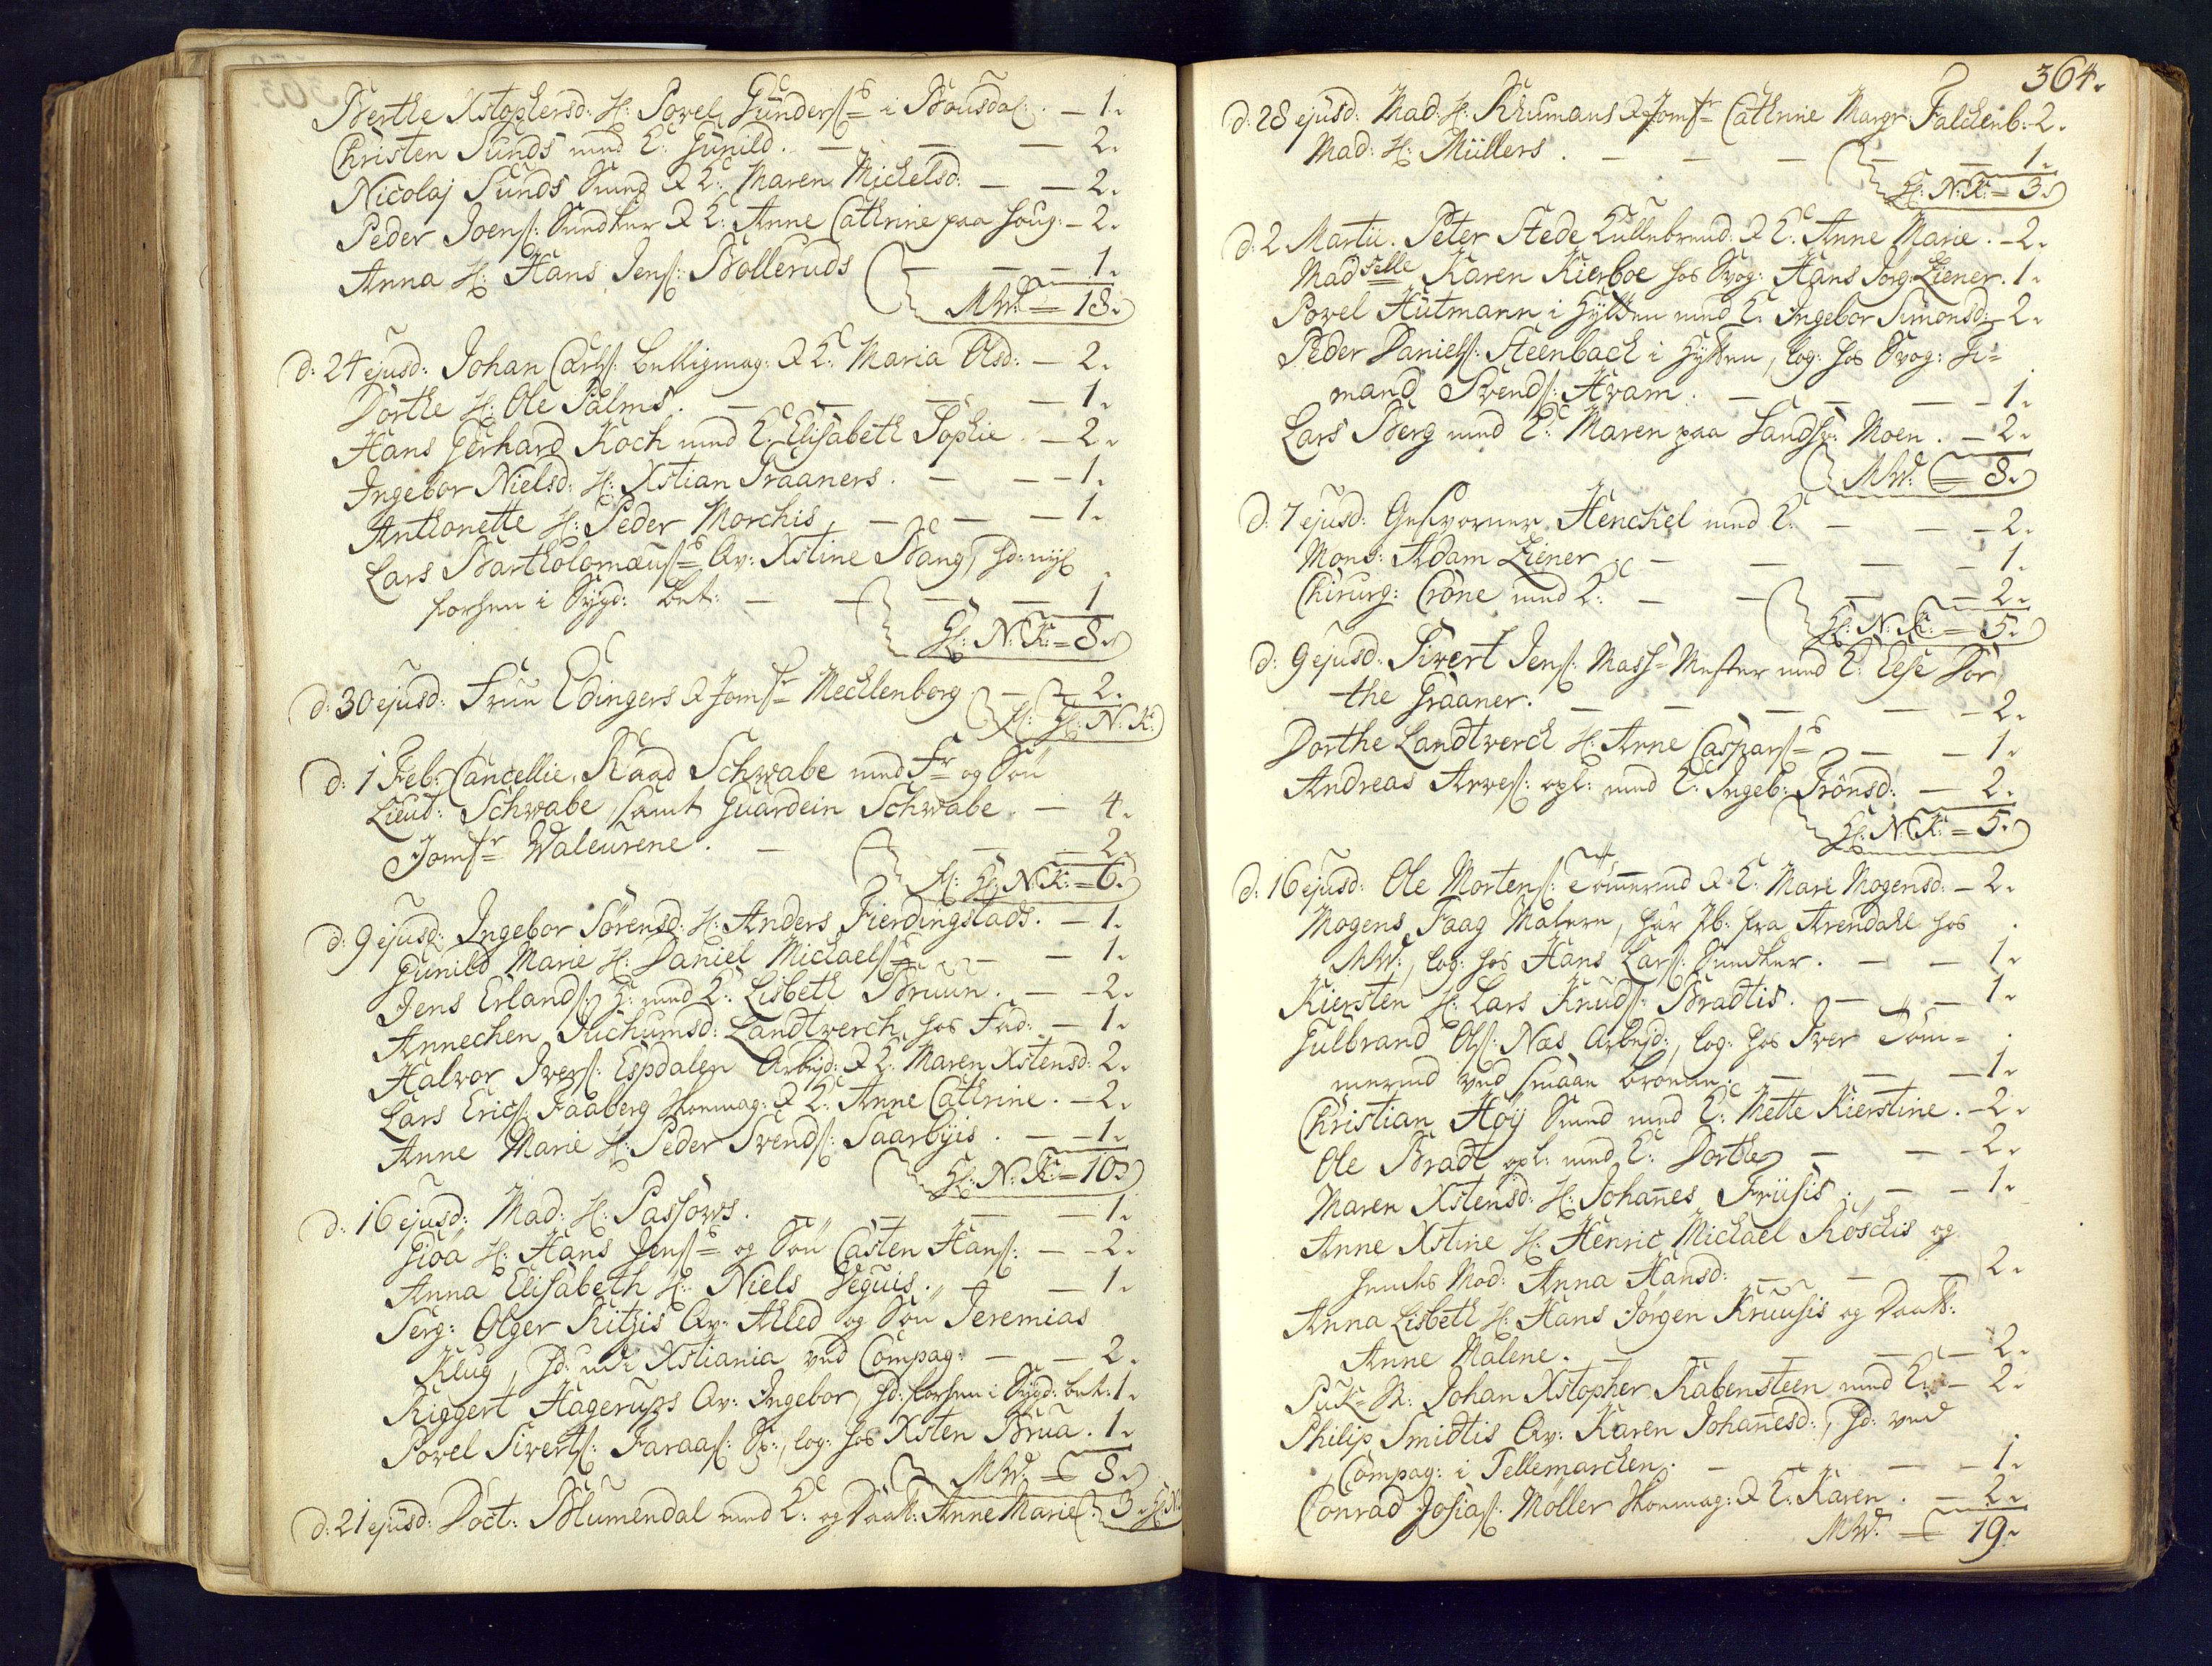 Berthe Xstophersd: H: Povel Gunders: i Bousdal. — 1.
Christen Sunds med K: Gunild. — — — 2.
Nicolaj Sunds Smed & K: Maren Michelsd: — — 2.
Peder Joens: Snedker & K: Anne Cathrine paa Houg. — 2.
Anna H: Hans Jens: Bolleruds — — — 1.
MW. = 18.
d: 24 ejusd: Johan Carls: & K: Maria Olsd: — 2.
Dorthe H: Ole Palms. — — — — 1.
Hans Gerhard Koch med K: Elisabeth Sophie. — 2.
Ingebor Nielsd: H: Xstian Traaners. — — — 1.
Anthonette H: Peder Morchis, — — — 1.
Lars Bartholomæus: Qv: Xstine Bang,
forhen i Sygd: bet: — — — — 1
H: N: K: = 8.
d: 30 ejusd: Frue Edingers & Jomfr Mecklenborg. — 2.
H: N: K:
d: 1 Feb: Cancellie Raad Schwabe med Fr og Søn
Lieut: Schwabe, samt Guardein Schwabe. — 4.
Jomfr Waleurene. — — — 2.
H: N: K: = 6.
d: 9 ejusd: Ingebor Sørensd: H: Anders Fierdingstads. — 1.
Gunild Marie H: Daniel Michaels: — — 1.
Jens Erlands: H: med K: Lisbeth Bruun. — 2.
Annechen Juchumsd: Landtverch hos Fad: — 1.
Halvor Ivers: Espdalen Arbejd: & K: Maren Xstensd: 2.
Lars Erics: Faaberg Skomag: & K: Anne Cathrine. — 2.
Anne Marie H: Peder Svends: Saarbyis. — — 1.
H: N: K: = 10.
d: 16 ejusd: Mad: H: Passows. — — — — 1.
Giøa H: Hans Jens: og Søn Casten Hans: — — 2.
Anna Elisabeth H: Niels Seguis. — — 1.
Serg: Olger Ritzis Qv: Alled og Søn Jeremias
Klug, Xstiania ved Compag: — — 2.
Riggert Hagerups Qv: Ingebor, forhen i Sygd: bet: 1.
Povel Siverts: Faraas: log: hos Xsten Brua. 1.
MW. = 8.
d: 21 ejusd: Doct: Blumendal med K: og Daatt: Anne Marie. 3.
364.
d: 28 ejusd: Mad: H: Khumans & Jomfr Cathrine Margr: Falckenb: 2.
Mad: H: Müllers. — — — — — 1.
H: N: K: = 3.
d: 2 Martii. Peter Stede Kullebrend: & K: Anne Marie. — 2.
Mad selle Karen Kierboe hos Svog: Hans Jørg: Ziener. 1.
Povel Hutmann i Hytten med K: Ingebor Simonsd: 2.
Peder Daniels: Steenbach i Hytten, log: hos Svog: Ti=
mand Svends: Hvam. — — — — 1.
Lars Berg med K: Maren paa Sandsv: Moen. — 2.
MW. = 8.
d: 7 ejusd: Gesvorner Henckel med K: — — — 2.
Mons: Adam Ziener — — — — 1.
Chirurg: Crone med K: — — — 2.
H: N: K: = 5.
d: 9 ejusd: Sivert Jens: Mass=Mester med K: Else Dor
the Graaner. — — — — — 2.
Dorthe Landtverch H: Arne Caspars: — — 1.
Andreas Arves: opl: med K: Ingeb: Trønsd: — 2.
H: N: K: = 5.
d: 16 ejusd: Ole Mortens: Tømmermd & K: Mari Mogensd: — 2.
Mogens Faag Malern, fra Arendahl hos
MW., log: hos Hans Lars: Snedker. — — 1.
Kiersten H: Lars Knuds: Bradtis. — — 1.
Gulbrand Ols: Næs Arbejd:, log: hos Iver Tøm=
mermd ved smaae broerne. — — — 1.
Christian Høy Smed med K: Mette Kierstine. — 2.
Ole Bradt opl: med K: Dorthe — — — 2.
Maren Xstensd: H: Johanes Friisis. — — 1.
Anne Xstine H: Henric Michael Röschis og
hendes Mod: Anna Hansd: — — — 2.
Anna Lisbeth H: Hans Jørgen Kruusis og Daatt:
Anne Malene. — — — — 2.
Puk=St: Johan Xstopher Rabensteen med K: — 2.
Philip Smidtis Qv: Karen Johanesd:, ved
Compag: i Tellemarchen. — — — 1.
Conrad Josias: Møller Skomag: & K: Karen. — 2.
MW. = 19.